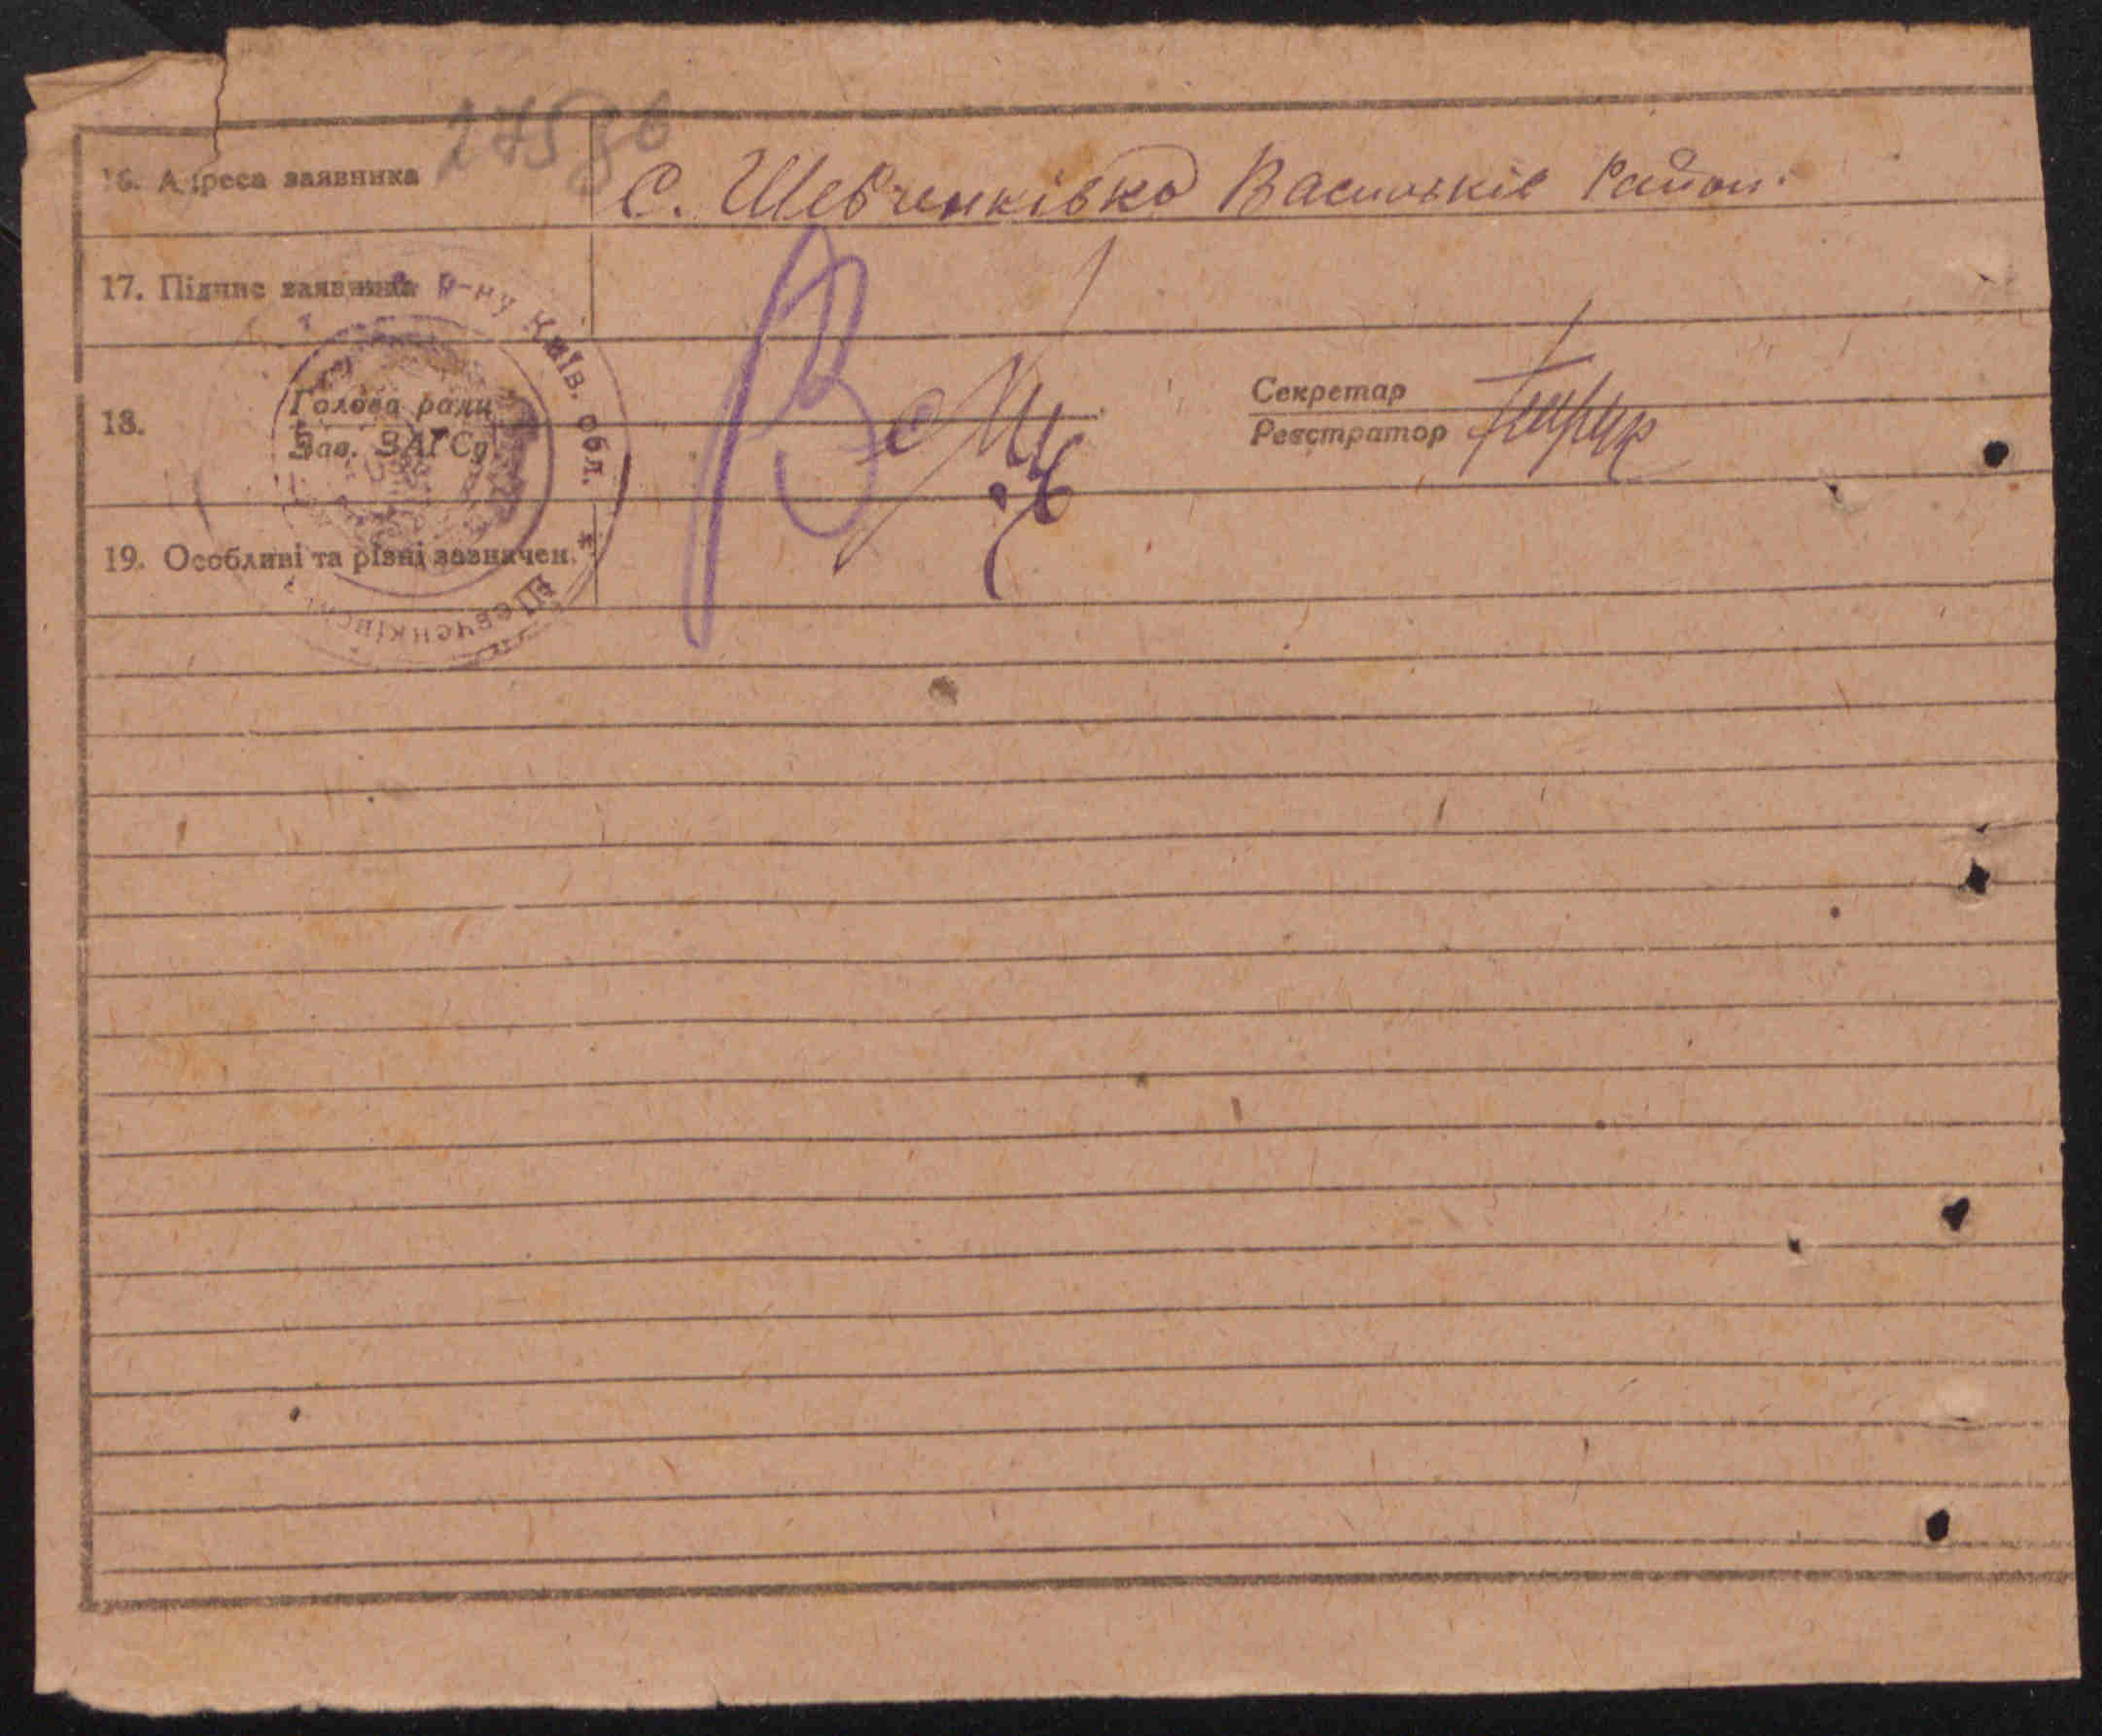 275
16. Адреса заявника С. Шевченківка Васильків Район.
17. Підпис заявника
18. Голова ради
Зав. ЗАГСу
Секретар
Реєстратор
19. Особливі та різні зазначен.
р-ну Київ. обл. * Шевченківс